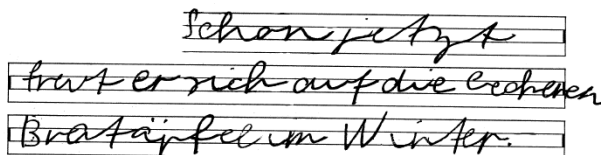 Schon jetzt
freut er sich auf die leckeren
Bratäpfel im Winter.